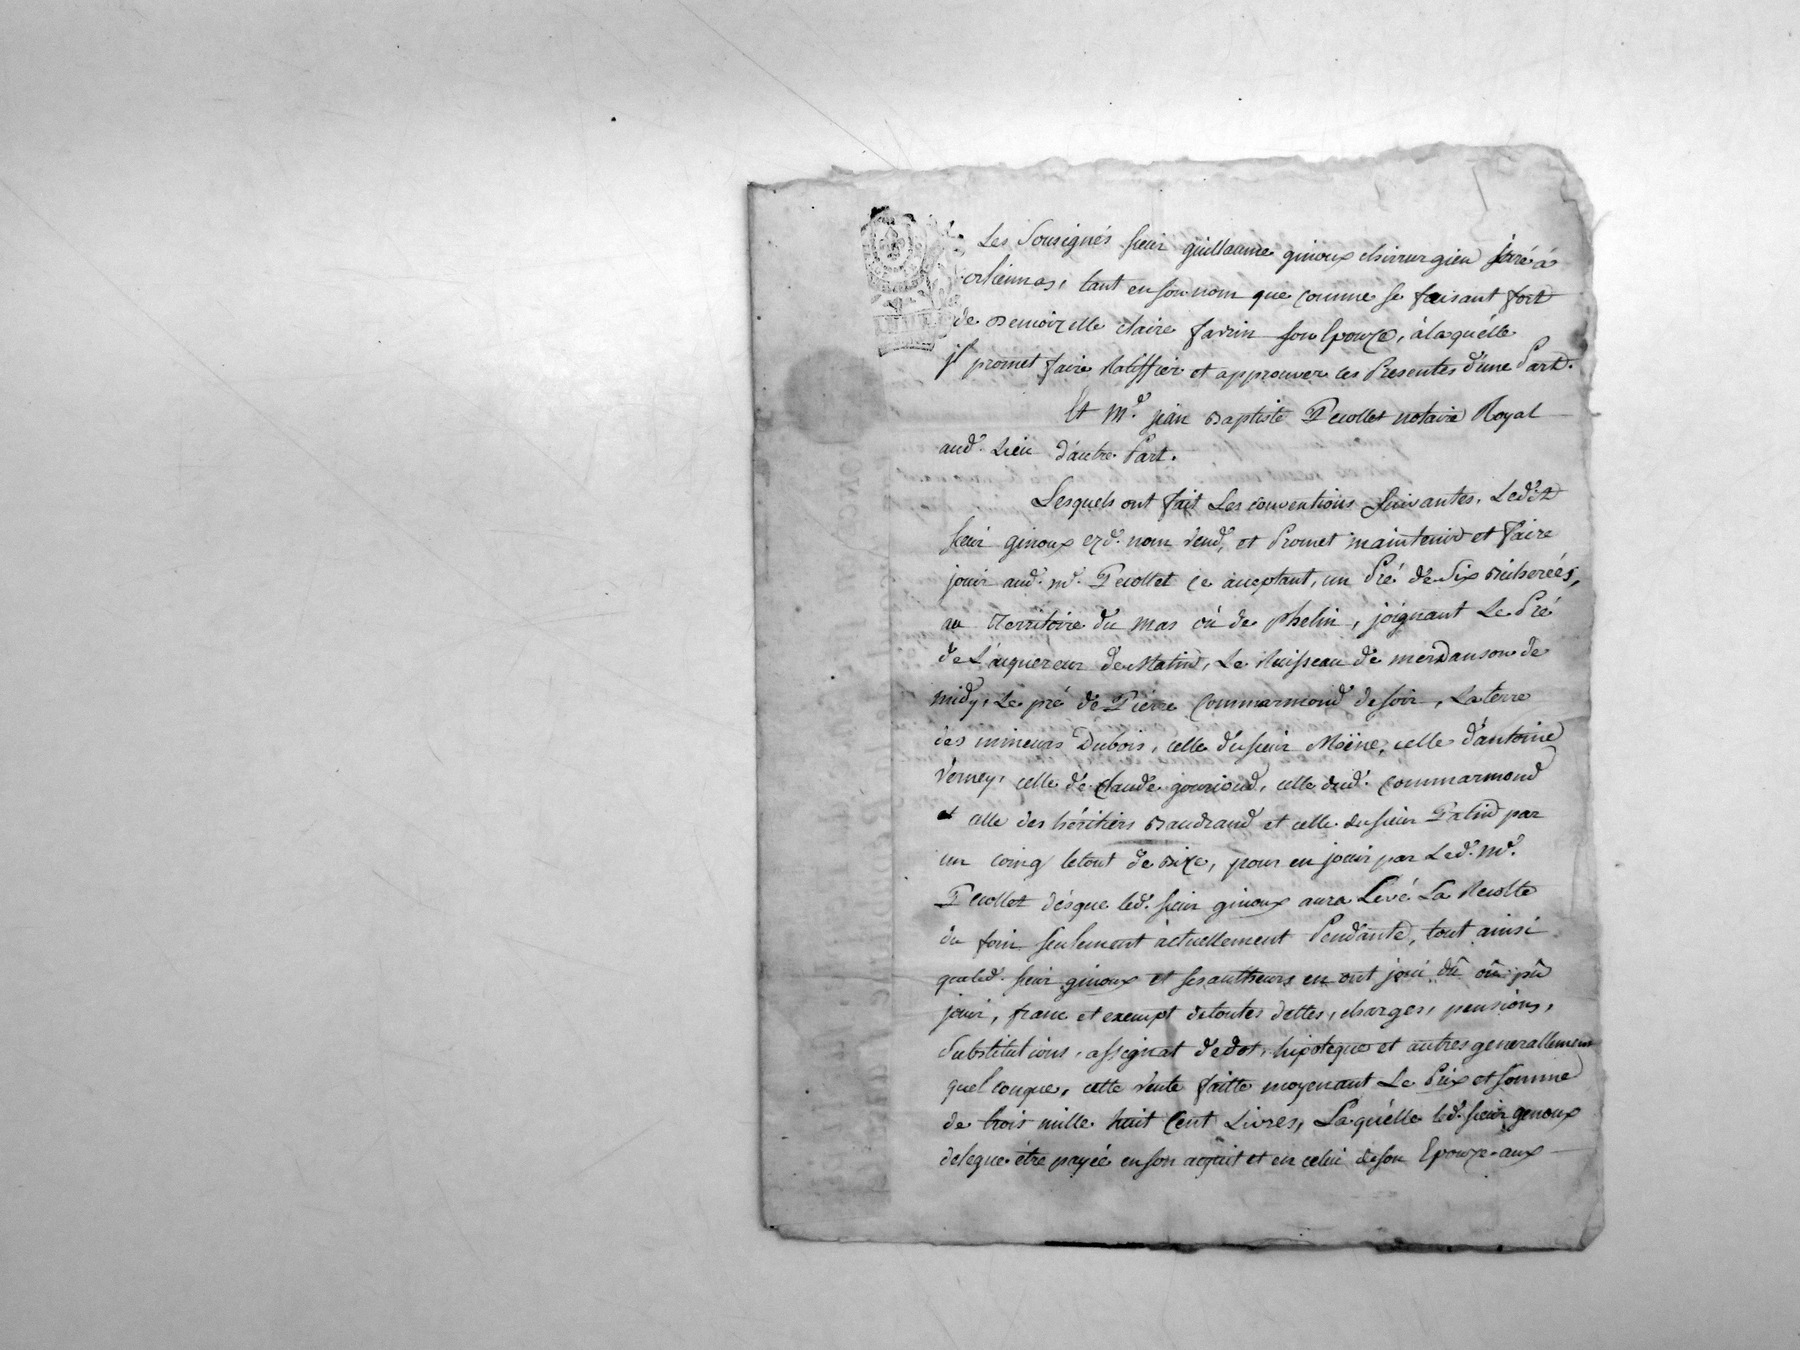 Les Sousignés sieur guillaume ginoux chirurgien juré à
orliennas, tant en son nom que comme se faisant fort
de Demoizelle claire favrin son Epouze, à laquélle
il promet faire Ratiffier et approuver ces Presentes d'une Part.
Et Me. jean Baptiste Pecollet notaire Royal
aud. Lieu d'autre Part.
Lesquels ont fait Les conventions suivantes. Ledit
sieur ginoux ezd. nom vend, et Promet maintenir et faire
jouir aud. Me. Pecollet ce acceptant, un Pré de Six Bicherées,
au Territoire du mas où de phelin, joignant Le Pré
de L'aquereur de Matin, Le Ruisseau de merdanson de
midy, Le pré de Piérre Commarmond de soir, La terre
des mineurs Dubois, celle du sieur Moine, celle d'antoine
Verney, celle de claude gouriond, celle dud. Commarmond
et celle des héritiers Baudrand et celle du sieur Patin par
un coing le tout de Bize, pour en jouir par Led. Me.
Pecollet désque led. sieur ginoux aura Levé La Recolte
du foin seulement actuellement Pendante, tout ainsi
que led. sieur ginoux et ses autheurs en ont joui dû où pû
jouir, franc et exempt de toutes dettes, charges, pensions,
Substitutions, assignat de dot, hipoteque et autres generallement
quelconque, cette vente faitte moyenant Le Prix et somme
de trois mille huit Cent Livres, Laquélle led. sieur ginoux
delegue être payée en son acquit et en celui de son Epouze aux